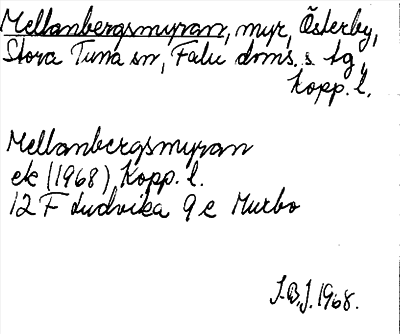 Mellanbergsmyran, myr, Österby,
Stora Tuna sn, Falu doms. tg,
Kopp. l.
Mellanbergsmyran
ek (1968) Kopp. l.
12 F Ludvika 9 e Murbo
J.B.J. 1968.